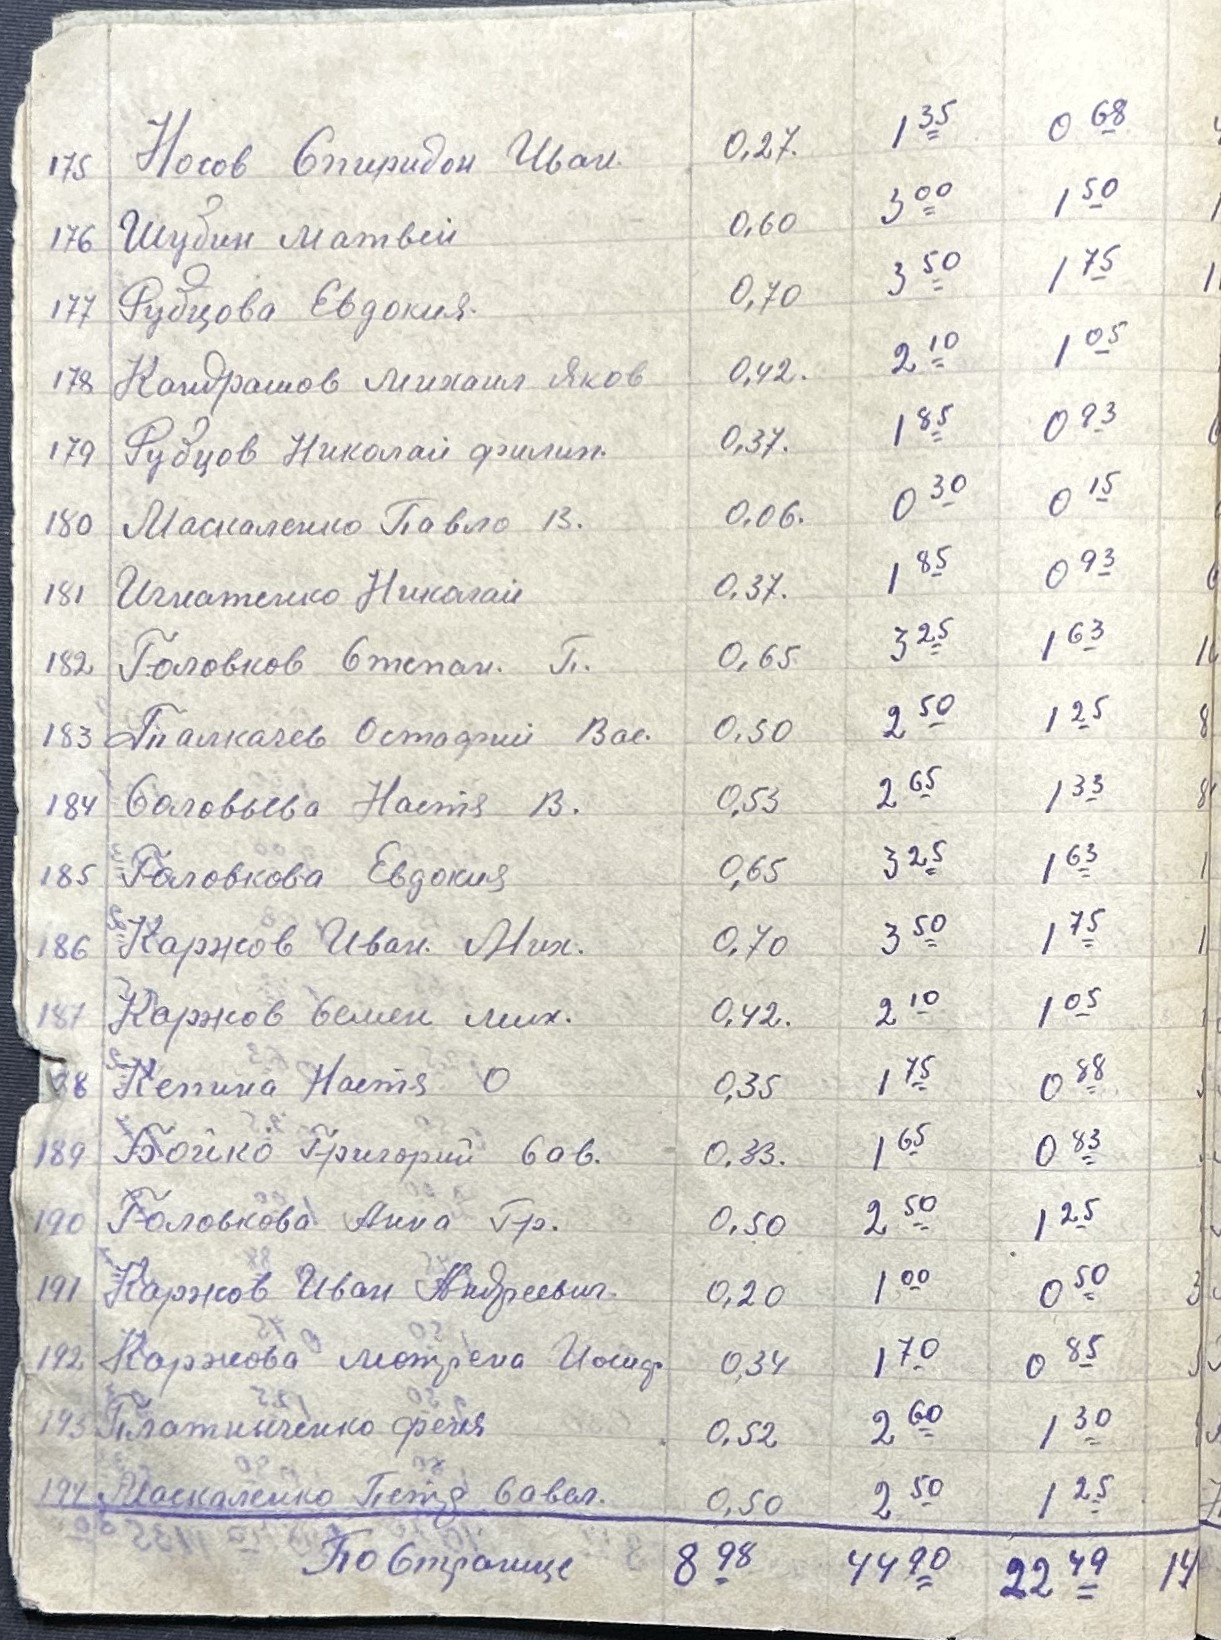 175 Носов Спиридон Иван. 0,27. 1 35 0 68
176 Шубин Матвей 0,60 3 00 1 50
177 Рубцова Евдокия. 0,70 3 50 1 75
178 Кандрашов Михаил Яков 0,42. 2 10 1 05
179 Рубцов Николай филип. 0,37. 1 85 0 93
180 Маскаленко Павло В. 0,06. 0 30 0 15
181 Игнатенко Николай 0,37. 1 85 0 93
182 Головков Степан. П. 0,65 3 25 1 63
183 Талкачев Остафий Вас. 0,50 2 50 1 25
184 Соловьева Настя В. 0,53 2 65 1 33
185 Головкова Евдокия 0,65 3 25 1 63
186 Каржов Иван. Мих. 0,70 3 50 1 75
187 Каржов Семен мих. 0,42. 2 10 1 05
88 Кепина Настя О 0,35 1 75 0 88
189 Бойко Григорий Сав. 0,33. 1 65 0 83
190 Головкова Анна Гр. 0,50 2 50 1 25
191 Каржов Иван Андреевич. 0,20 1 00 0 50 3
192 Каржова мотрена Иосиф 0,34 1 70 0 85
193 феня 0,52 2 60 1 30
194 Маскаленко Петр Савел. 0,50 2 50 1 25
По Странице 8 98 44 90 22 49 14